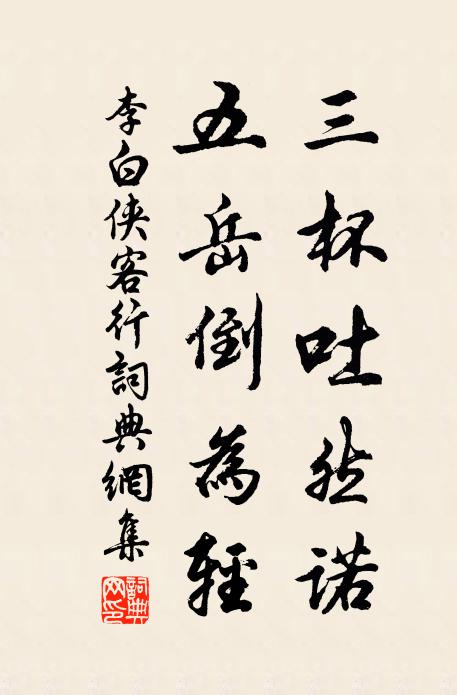 三杯吐然诺
五岳倒為輕
李白俠客行詞典網集
詞典网印